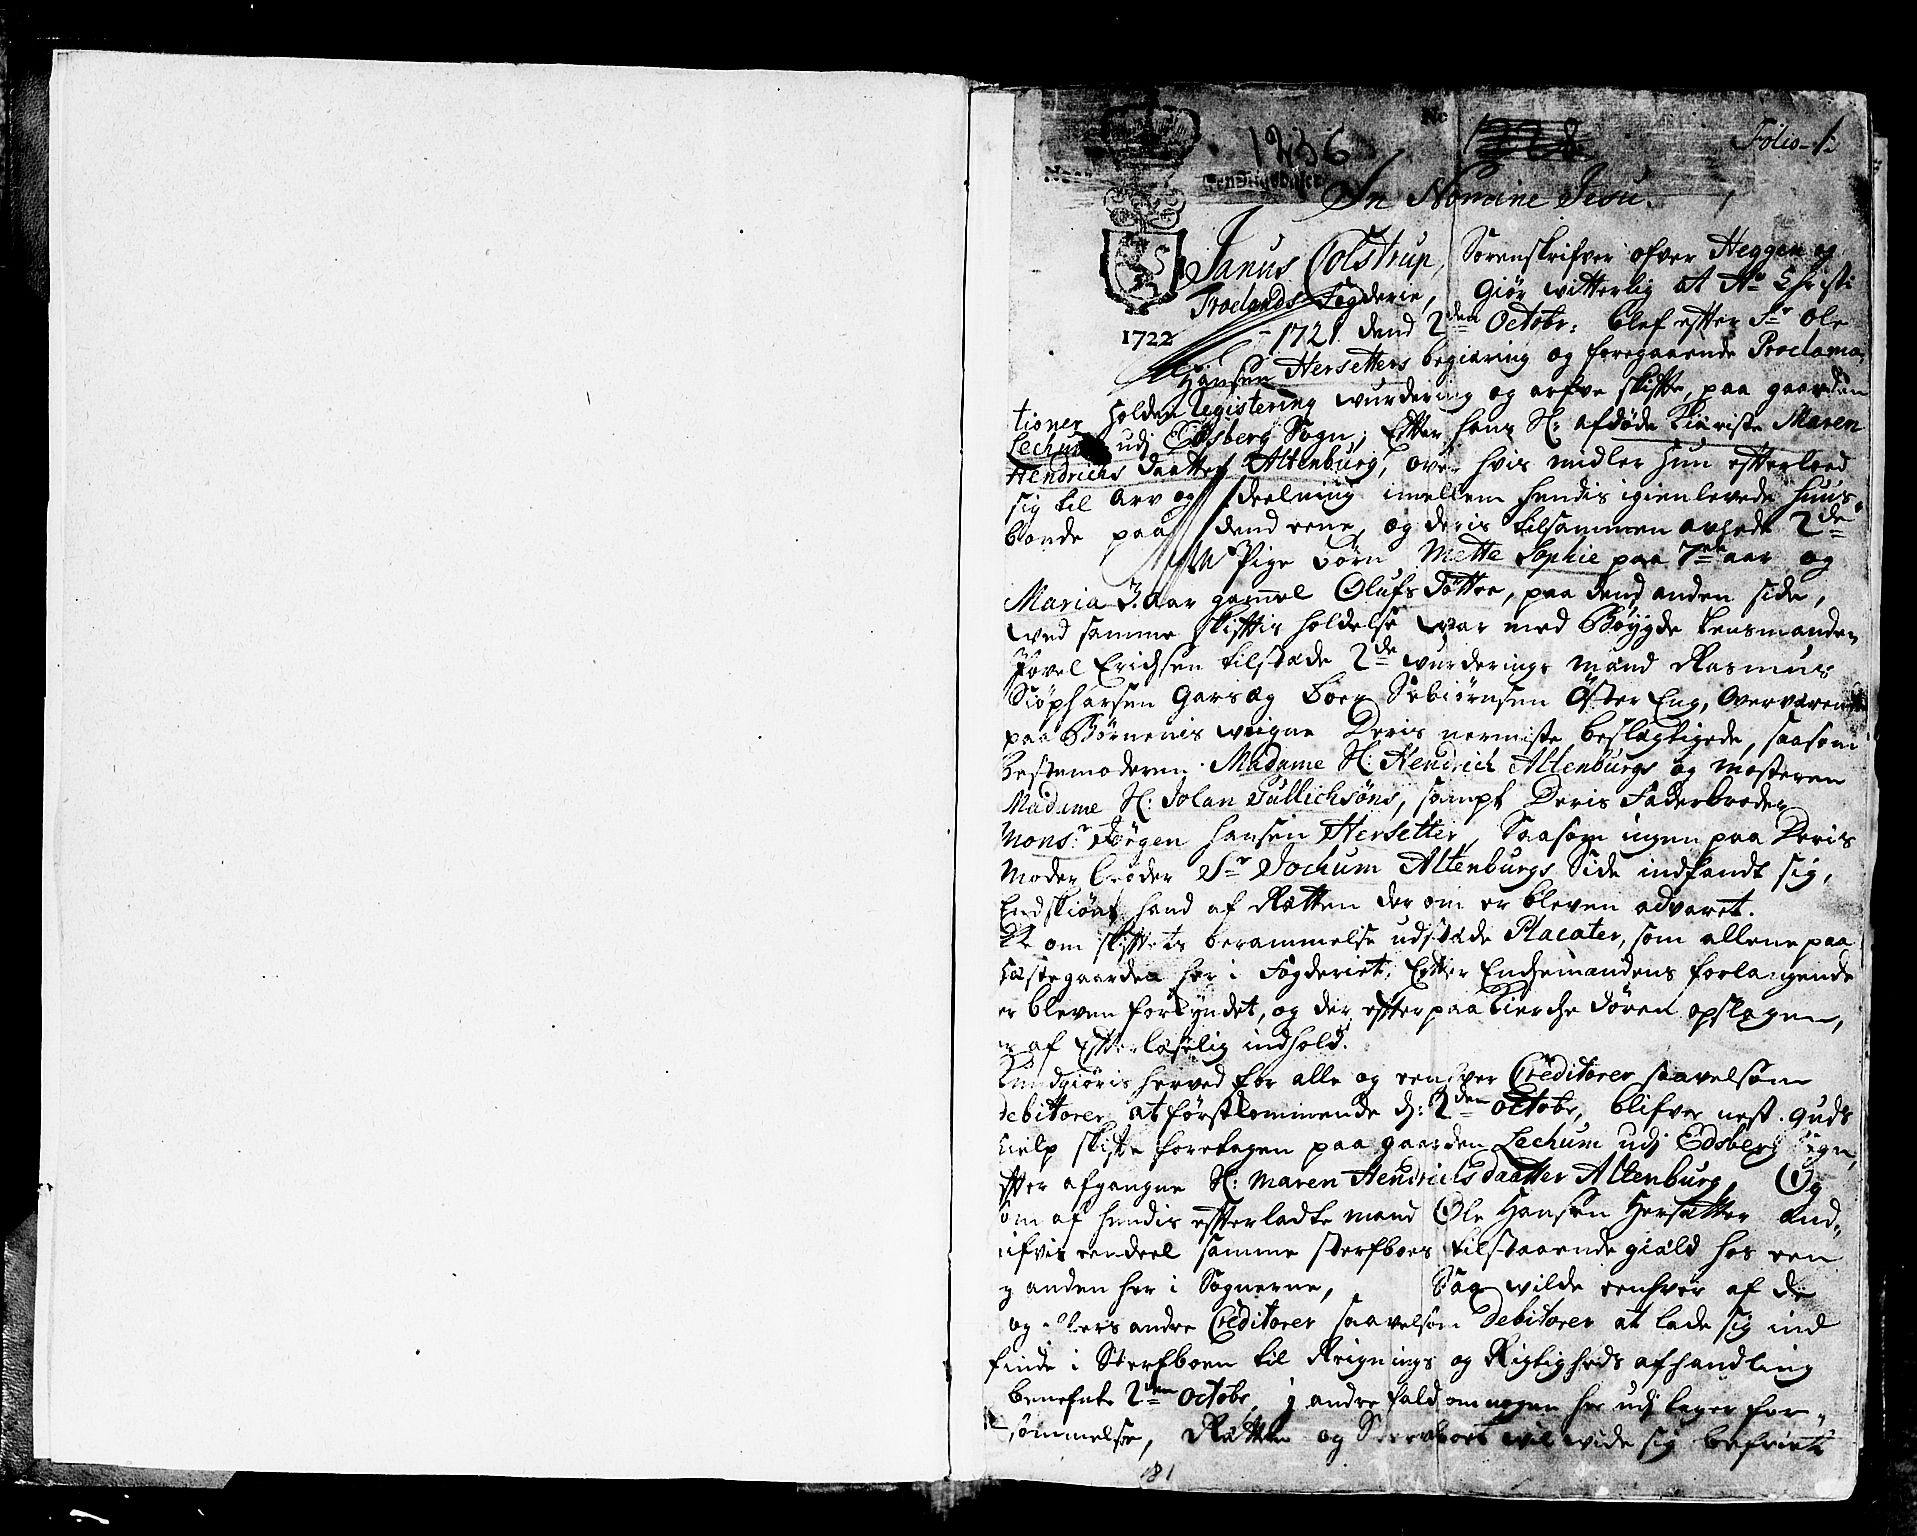 1236
Folio 1
In Nomine Jesu.
Janus Colstrup, Sorenskrifver ofver Heggen og
Frølands Fogderie, Giør witterlig at Ao Christi
1722
1721 dend 2den Octobr: blef efter Sr Ole
Hansen Hersetters begiæring og foregaaende Proclama-
tioner holden Registering wurdering og arfve skifte, paa gaarden
Lechum udj Edsberg Sogn, Efter hans Sl: afdøde Kiæreste Maren
Hendrichs daatter Altenburg, over hvis midler hun efterloed
sig til arv og deelning imellem hendis igienlevede huus-
bonde paa dend eene, og deris tilsammen aulede 2de
Pige børn Mette Sophie paa 7 aar og
Maria 3 aar gammel Olufs døttre, paa dend anden side,
wed samme skiftis holdelse war med Bøygde Lensmanden
Povel Erichsen tilstæde 2de wurderings mænd Rasmus
paa Børnenis weigne Deris nermiste beslægtigede, saasom
bestemoderen Madame Sl: Hendrich Altenburgs og mosteren
Madame Sl: Johan Gullichsøns, sampt Deris Faderbroder
Monsr: Jørgen Hansen Hersetter, Saasom ingen paa Deris
Moder broder Sr Jochum Altenburgs Side indfandt sig,
Endskiønt hand af Retten der om er bleven advaret.
De om skiftets berammelse udstæde Placater, som allene paa
præstegaarden her i Fogderiet, Efter Enchemandens forlangende
er bleven forkyndet, og der efter paa Kierche døren opslagen,
er af Efterløselig indhold.
Kundgiøris herved for alle og eenhver Creditorer saavelsom
debitorer, at førstkommende d: 2den octobr, blifver nest Guds
hielp skifte foretagen paa gaarden Lechum udj Edsberg Sogn,
efter afgangne Sl: Maren Hendrichsdaatter Altenburg, Og
som af hendis efterladte mand Ole Hansen Hersetter and-
gifvis eendeel samme sterfboes tilstaaende giæld hos een
og anden her i Sognerne, Saa wilde eenhver af de
og andre Creditorer saavelsom debitorer at lade sig ind
finde i Sterfboen til Reignings og Rigtigheds afhandling
benefnte 2den octobr, j andre fald om nogen her udj lager for-
sømmelse, Retten og Sterfboet wil wide sig befriet
181